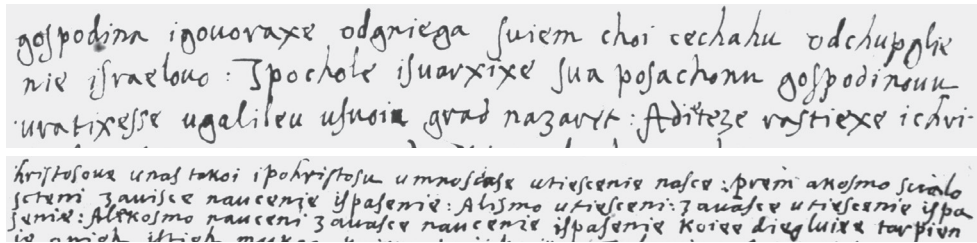 gospodina igouoraxe odgniega suiem choi cechahu odchupglie
nie israelouo : Ipochole isuarxixe sua posachonu gospodinouu
uratixesse ugalileu usuoiu grad nazaret : Aditeze rastiexe ichri-
hristosoue unas takoi ipohristosu umnoscase utiescenie nasce : prem akosmo sualo
sceni zauisce naucenie ispasenie : Alismo utiesceni : zauasce utiescenie ispa
senie : Alekosmo nauceni zauasce naucenie ispasenie koiee dieluiee tarpien